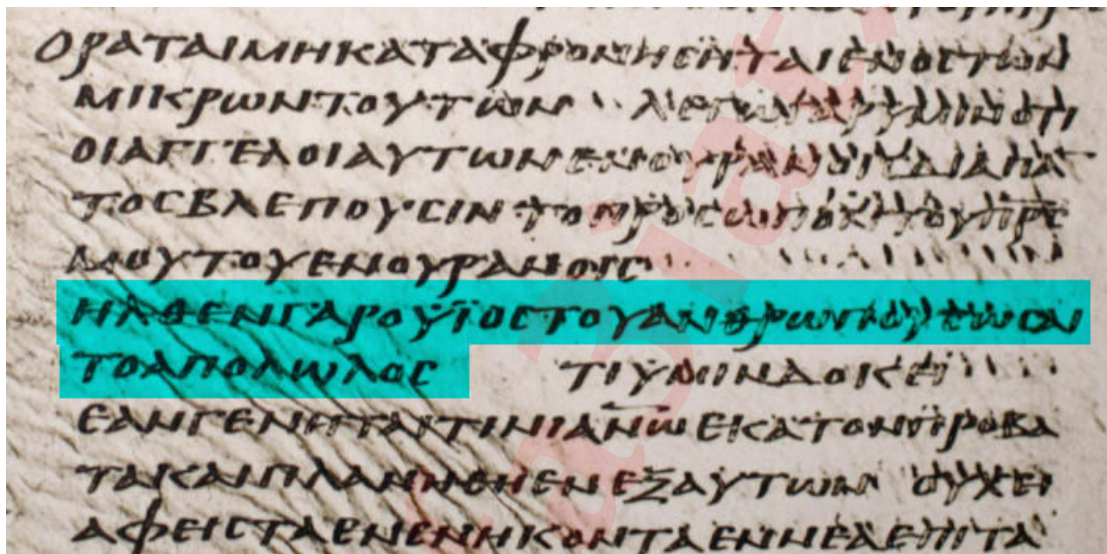 ΟΡΑΤΑΙΜΗΚΑΤΑΦΡΟΝΗCΗΤΑΙΕΝΟCΤΩΝ
ΜΙΚΡΩΝΤΟΥΤΩΝ ΛΕΓΩΓΑΡΥΜΙΝΟΤΙ
ΟΙΑΓΓΕΛΟΙΑΥΤΩΝΕΝΟΥΡΑΝΟΙCΔΙΑΠΑ
ΤΟCΒΛΕΠΟΥCΙΝΤΟΠΡΟCΩΠΟΝΤΟΥΠΡC
ΜΟΥΤΟΥΕΝΟΥΡΑΝΟΙC
ΗΛΘΕΝΓΑΡΟΥΪΟCΤΟΥΑΝΘΡΩΠΟΥCΩCΑΙ
ΤΟΑΠΟΛΩΛΟC ΤΙΥΜΙΝΔΟΚΕΙ
ΕΑΝΓΕΝΗΤΑΙΤΙΝΙΑΝΩΕΚΑΤΟΝΠΡΟΒΑ
ΤΑΚΑΙΠΛΑΝΗΘΗΕΝΕΞΑΥΤΩΝ ΟΥΧΕΙ
ΑΦΕΙCΤΑΕΝΕΝΗΚΟΝΤΑΕΝΝΕΑΕΠΙΤΑ